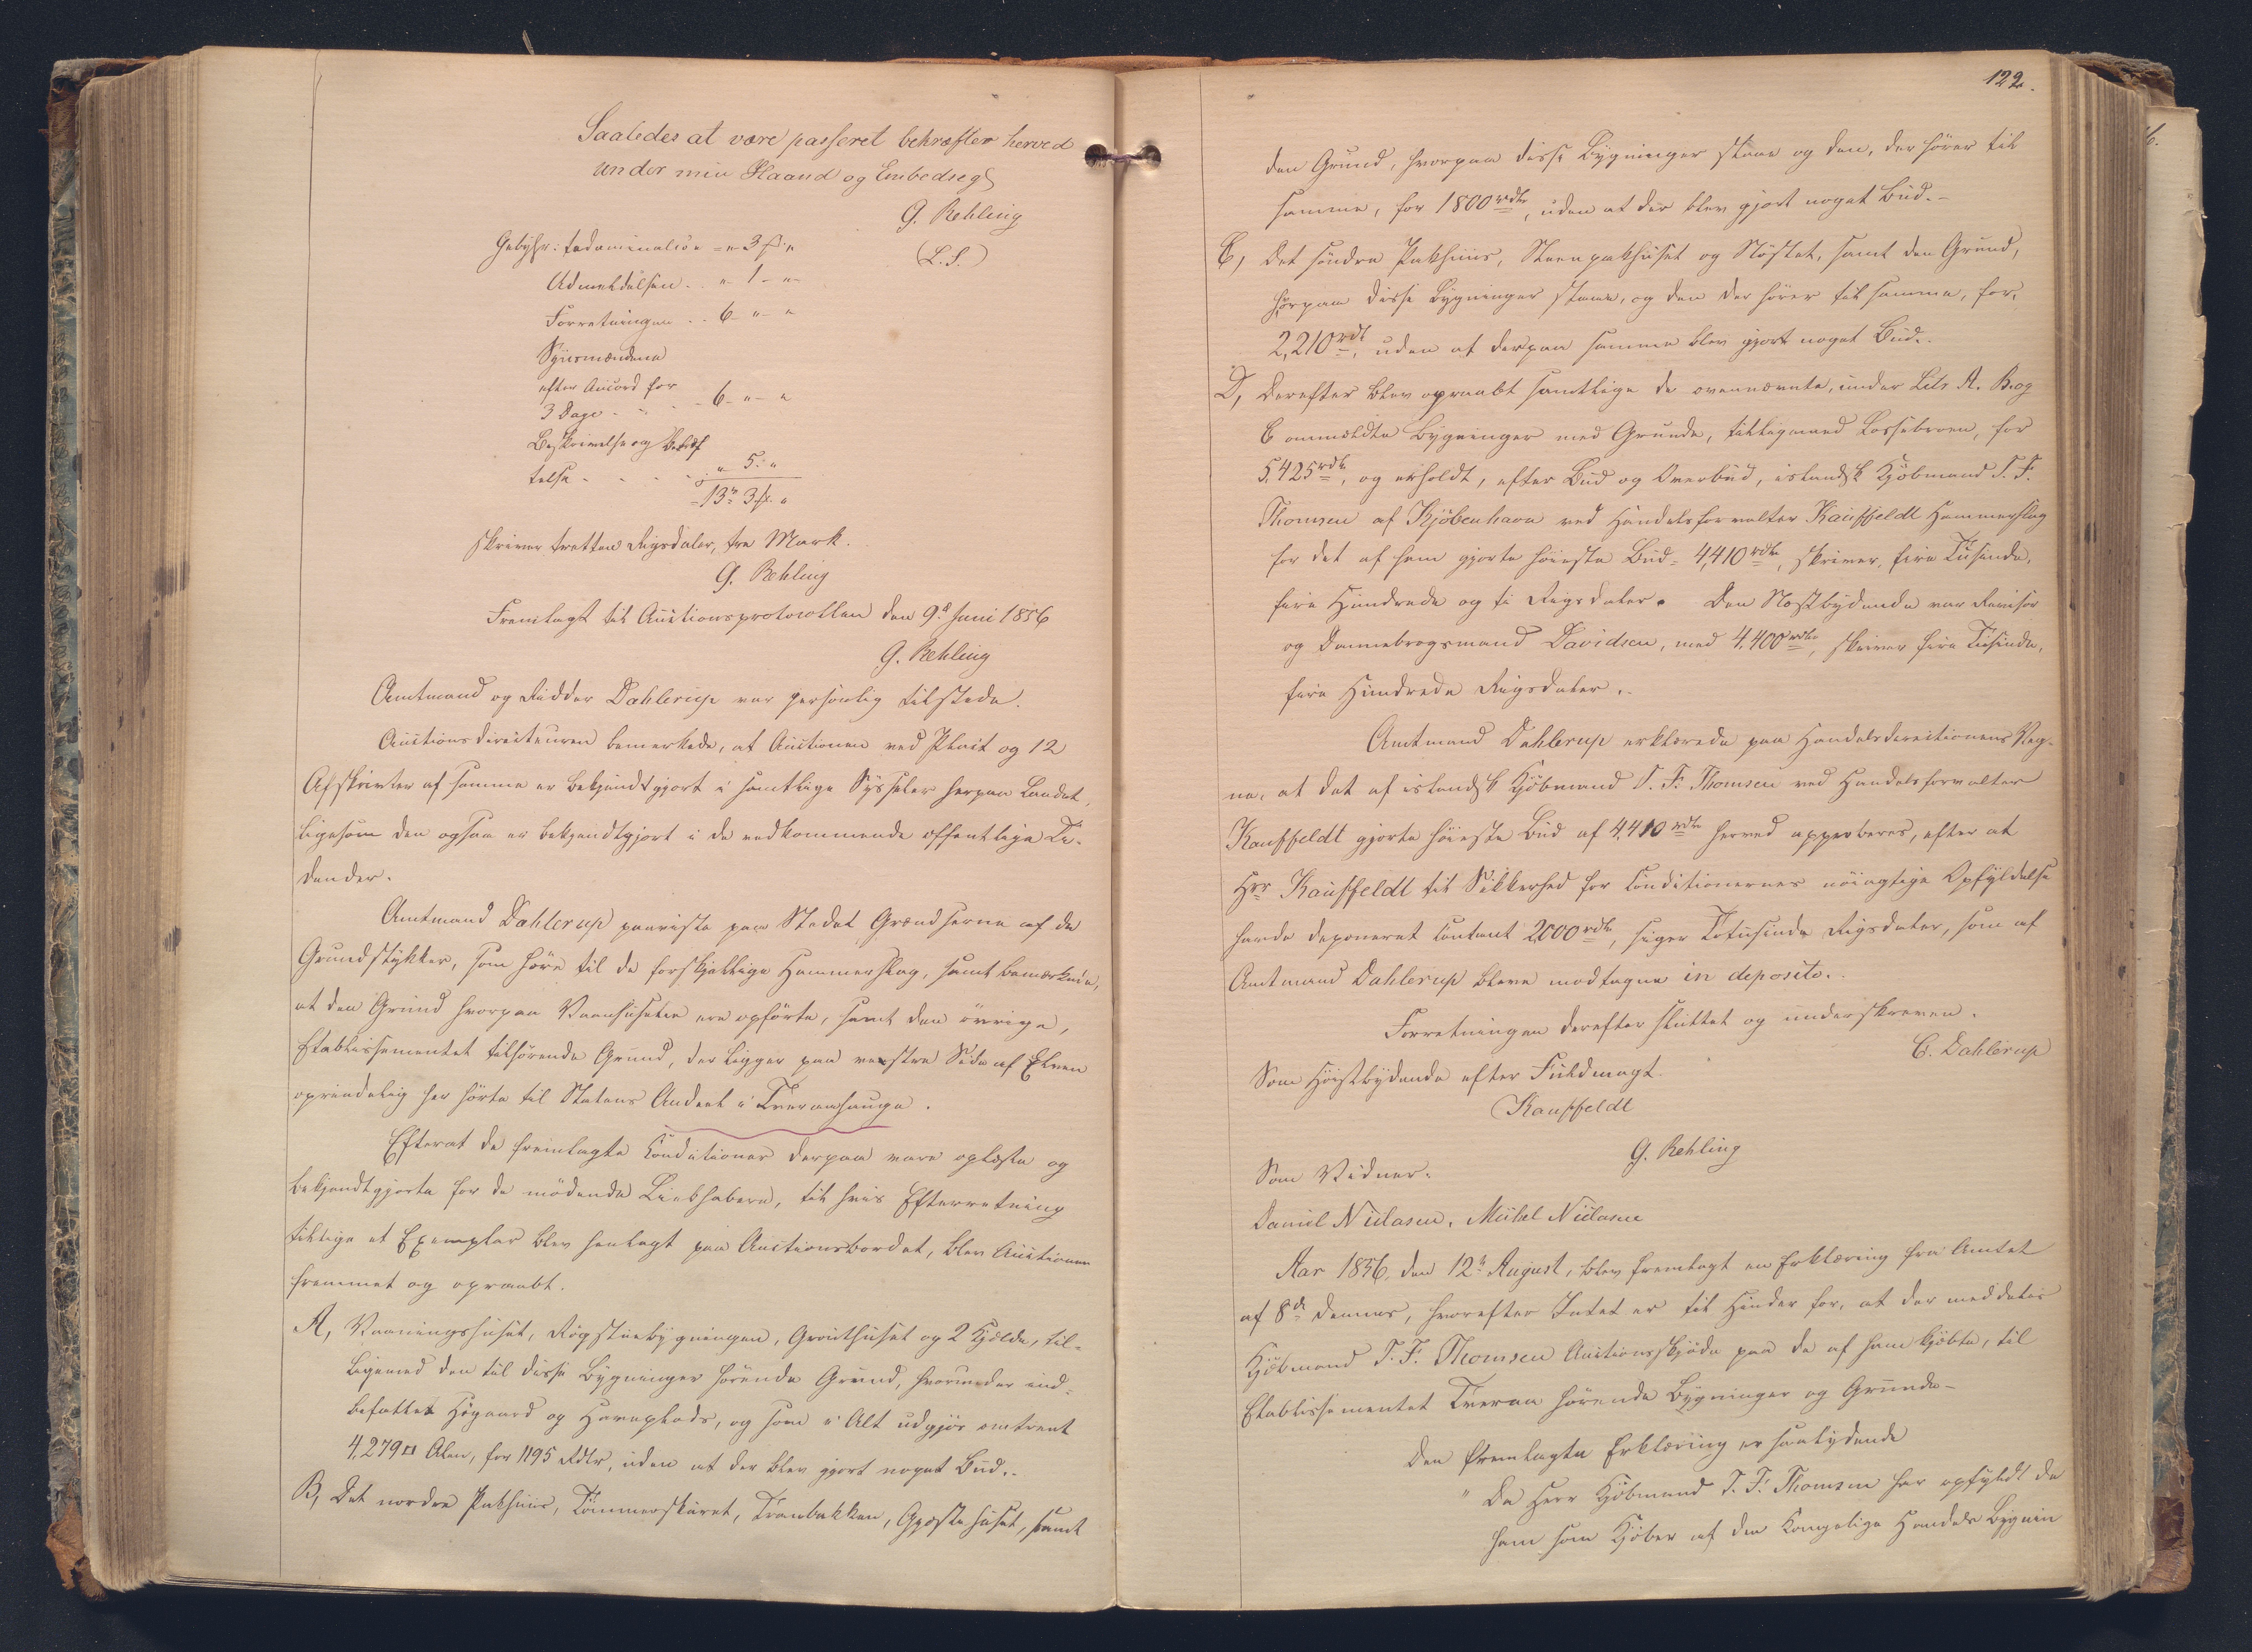 Saaledes at være passeret bekræfter herved
under min Haand og Embedsegl
G. Rehling
(L.S.)
Gebyhr: fadominalise = " 3 ß "
Udmeldelsen . . " 1 - "
Forretningen . . 6 - " - "
Synsmændene
efter Accord for
3 Dage - - - 6 - " - "
Beskrivelse og Bekræf
telse - - - - " 5 : "
= 13 rd 3 ß "
skriver tretten Rigsdaler, tre Mark.
G. Rehling
Fremlagt til Auctionsprotocollen den 9de Juni 1856
G. Rehling
Amtmand og Ridder Dahlerup var personlig tilstede.
Auctionsdirecteuren bemærkede, at Auctionen ved Placat og 12
Afskrivter af samme er bekjendtgjort i samtlige Sysseler herpaa Landet,
ligesom den ogsaa er bekjendtgjort i de vedkommende offentlige Ti-
dender.
Amtmand Dahlerup paaviste paa Stedet Grændserne af de
Grundstykker, som høre til de forskjellige Hammerslag, samt bemærkede,
at den Grund hvorpaa Vaaahusene ere opførte, samt den øvrige,
Etablissementet tilhørende Grund, der ligger paa venstre Side af Elven
oprindelig har hørt til Statens Andeel i Tveraahauge.
Efterat de fremlagte Conditioner derpaa vare oplæste og
bekjendtgjorte for de mødende Liebhabere, til hvis Efterretning
tillige et Exemplar blev henlagt paa Auctionsbordet, blev Auctionen
fremmet og opraabt.
A, Vaaningshuset, Røgstuebygningen, Grouthuset og 2 Kjelde, til-
ligemed den til disse Bygninger hørende Grund, hvorunder ind-
befattet Høgaard og Haveplads, og som i Alt udgjør omtrent
4,279 □ Alen, for 1195 Rdlr, uden at der blev gjort noget Bud.-
B, Det nordre Pakhuus, Tømmerskuret, Tranbakken, Gjæstehuset, samt
122.
den Grund, hvorpaa disse Bygninger staae og den, der hører til
samme, for 1800 rdlr, uden at der blev gjort noget Bud.-
C, Det søndre Pakhuus, Steenpakhuset og Nøstet, samt den Grund,
hvorpaa disse Bygninger staae, og den der hører til samme, for
2,210 rdl, uden at derpaa samme blev gjort noget Bud.-
D, Derefter blev opraabt samtlige de ovennævnte, under Litr A. B. og
C ommeldte Bygninger med Grunde, tilligemed Lossebroen, for
5,425 rdlr, og erholdt, efter Bud og Overbud, islandsk Kjøbmand T. F.
Thomsen af Kjøbenhavn ved Handelsforvalter Kauffeldt Hammerslag
for det af ham gjorte høieste Bud = 4,410 rdlr, skriver, fire Tusinde,
fire Hundrede og ti Rigsdaler. Den Næstbydende var Revisor
og Dannebrogsmand Davidsen, med 4,400 rdlr, skriver fire Tusinde,
fire Hundrede Rigsdaler.-
Amtmand Dahlerup erklærede paa Handelsdirectionens Veg-
ne, at det af islandsk Kjøbmand T. F. Thomsen ved Handelsforvalter
Kauffeldt gjorte høieste Bud af 4,410 rdlr herved approberes, efter at
Hrr Kauffeldt til Sikkerhed for Conditionernes nøiagtige Opfyldelse
havde deponeret contant 2000 rdlr, siger Totusinde Rigsdaler, som af
Amtmand Dahlerup bleve modtagne in deposito.
Forretningen derefter sluttet og underskreven.
C. Dahlerup
Som Høistbydende efter Fuldmagt
Kauffeldt
G. Rehling
Som Vidner:
Daniel Niclasen, Michel Niclasen
Aar 1856, den 12te August, blev fremlagt en Erklæring fra Amtet
af 8de dennes, hvorefter Intet er til Hinder for, at der meddeles
Kjøbmand T. F. Thomsen Auctionsskjøde paa de af ham kjøbte, til
Etablissementet Tveraa hørende Bygninger og Grunde-
Den fremlagte Erklæring er saalydende
" Da Herr Kjøbmand T. F. Thomsen har opfyldt de
ham som Kjøber af den Kongelige Handels Bygnin